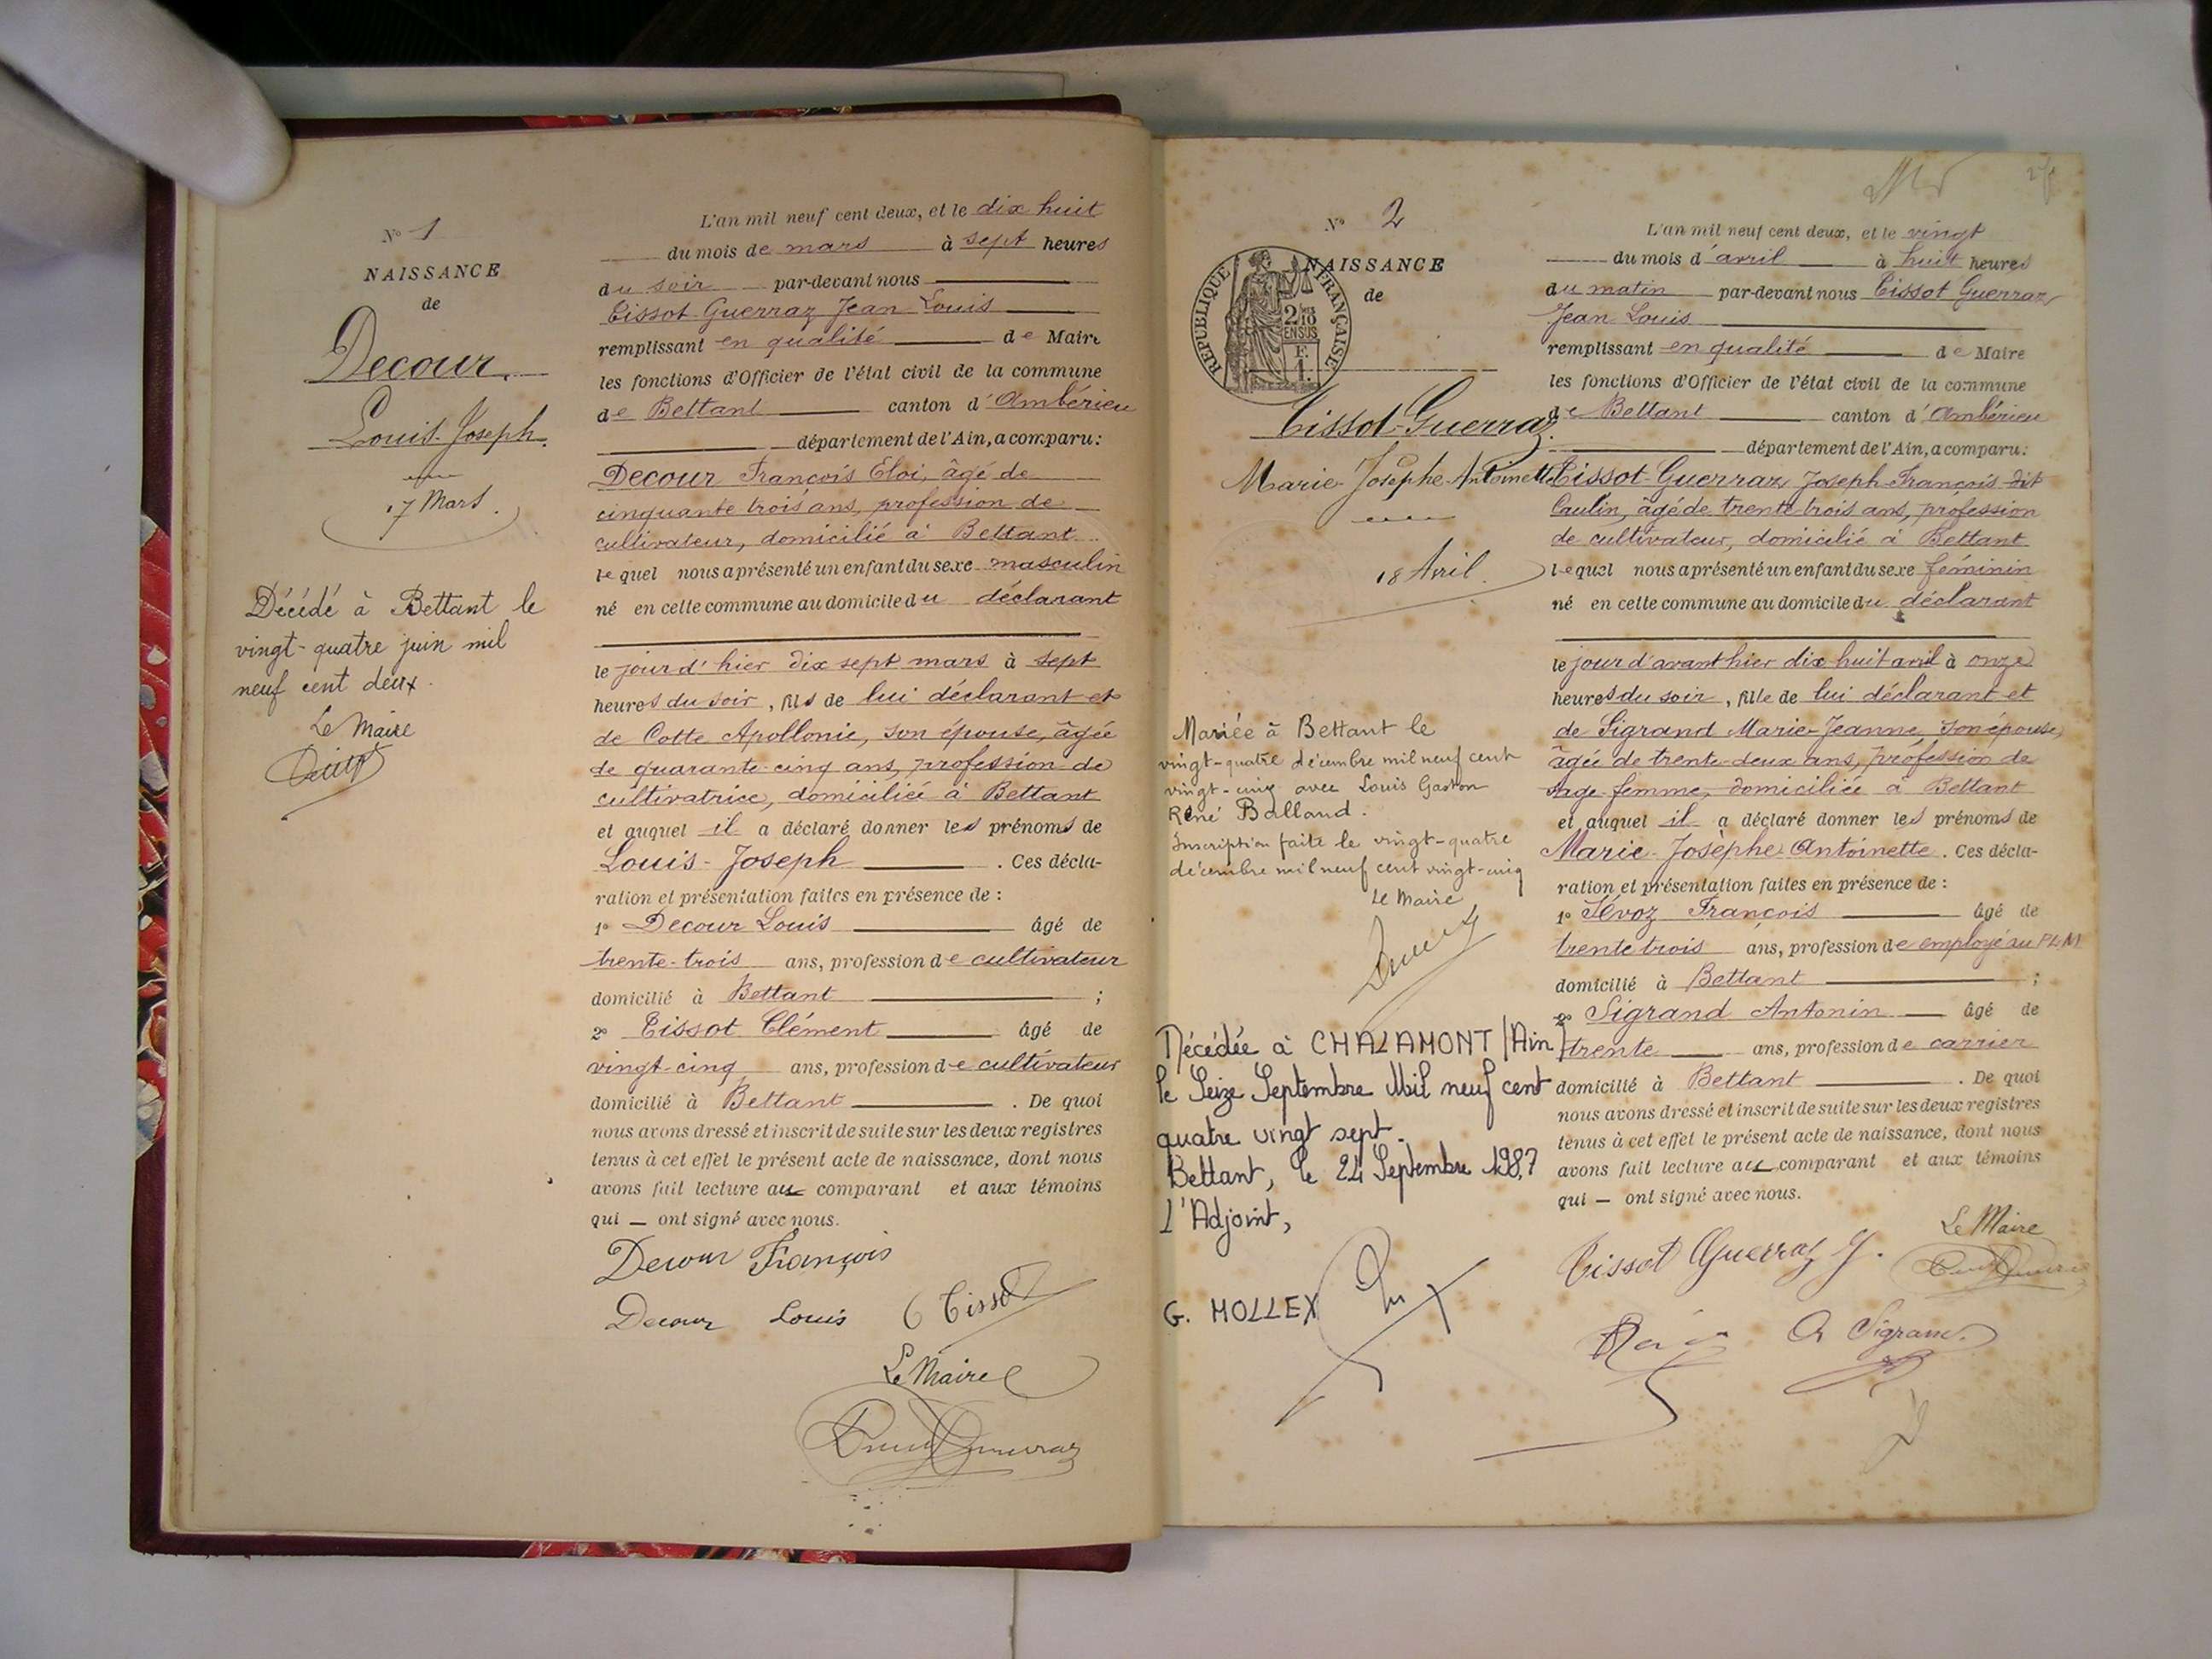 N° 1
NAISSANCE
de
Decour
Louis-Joseph.
17 Mars.
Décédé à Bettant le
vingt-quatre juin mil
neuf cent deux.
Le Maire
L'an mil neuf cent deux, et le dix huit
du mois de mars à sept heures
du soir par-devant nous
Tissot-Guerraz Jean Louis
remplissant en qualité de Maire
les fonctions d'Officier de l'état civil de la commune
de Bettant canton d'Ambérieu
département de l'Ain, a comparu:
Decour François Eloi, âgé de
cinquante trois ans, profession de
cultivateur, domicilié à Bettant
lequel nous a présenté un enfant du sexe masculin
né en cette commune au domicile du déclarant
le jour d'hier dix sept mars à sept
heures du soir, fils de lui déclarant et
de Cotte Apollonie, son épouse, âgée
de quarante-cinq ans, profession de
cultivatrice, domiciliée à Bettant
et auquel il a déclaré donner les prénoms de
Louis-Joseph. Ces décla-
ration et présentation faites en présence de :
1° Decour Louis âgé de
trente-trois ans, profession de cultivateur
domicilié à Bettant ;
2° Tissot Clément âgé de
vingt-cinq ans, profession de cultivateur
domicilié à Bettant. De quoi
nous avons dressé et inscrit de suite sur les deux registres
tenus à cet effet le présent acte de naissance, dont nous
avons fait lecture au comparant et aux témoins
qui — ont signé avec nous.
Decour François
Decour Louis C Tissot
Le Maire
N° 2
NAISSANCE
de
REPUBLIQUE FRANÇAISE
2/10
EN SUS
F.
1.
Tissot-Guerraz.
Marie-Josephe-Antoinette
18 Avril.
Mariée à Bettant le
vingt-quatre décembre mil neuf cent
vingt-cinq avec Louis Gaston
René Balland.
Inscription faite le vingt-quatre
décembre mil neuf cent vingt-cinq
Le Maire
Décédée à CHALAMONT (Ain)
le Seize Septembre Mil neuf cent
quatre vingt sept.
Bettant, le 24 Septembre 1987
L'Adjoint,
G. MOLLEX
L'an mil neuf cent deux, et le vingt
du mois d'avril à huit heures
du matin par-devant nous Tissot Guerraz
Jean Louis
remplissant en qualité de Maire
les fonctions d'Officier de l'état civil de la commune
de Bettant canton d'Ambérieu
département de l'Ain, a comparu:
Tissot-Guerraz Joseph-François dit
Paulin, âgé de trente-trois ans, profession
de cultivateur, domicilié à Bettant
lequel nous a présenté un enfant du sexe féminin
né en cette commune au domicile du déclarant
le jour d'avant hier dix huit avril à onze
heures du soir, fille de lui déclarant et
de Sigrand Marie-Jeanne, son épouse,
âgée de trente-deux ans, profession de
sage-femme, domiciliée à Bettant
et auquel il a déclaré donner les prénoms de
Marie-Josèphe Antoinette. Ces décla-
ration et présentation faites en présence de :
1° François âgé de
trente trois ans, profession de employé au PLM
domicilié à Bettant ;
2° Sigrand Antonin âgé de
trente ans, profession de carrier
domicilié à Bettant. De quoi
nous avons dressé et inscrit de suite sur les deux registres
tenus à cet effet le présent acte de naissance, dont nous
avons fait lecture au comparant et aux témoins
qui — ont signé avec nous.
Le Maire
Tissot Guerraz J.
A Sigrand